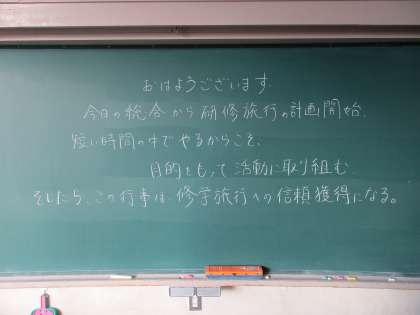 おはようございます.
今日の総合から研修旅行の計画開始.
短い時間の中でやるからこそ、
目的をもって活動に取り組む
そしたら、この行事は修学旅行への信頼獲得になる。